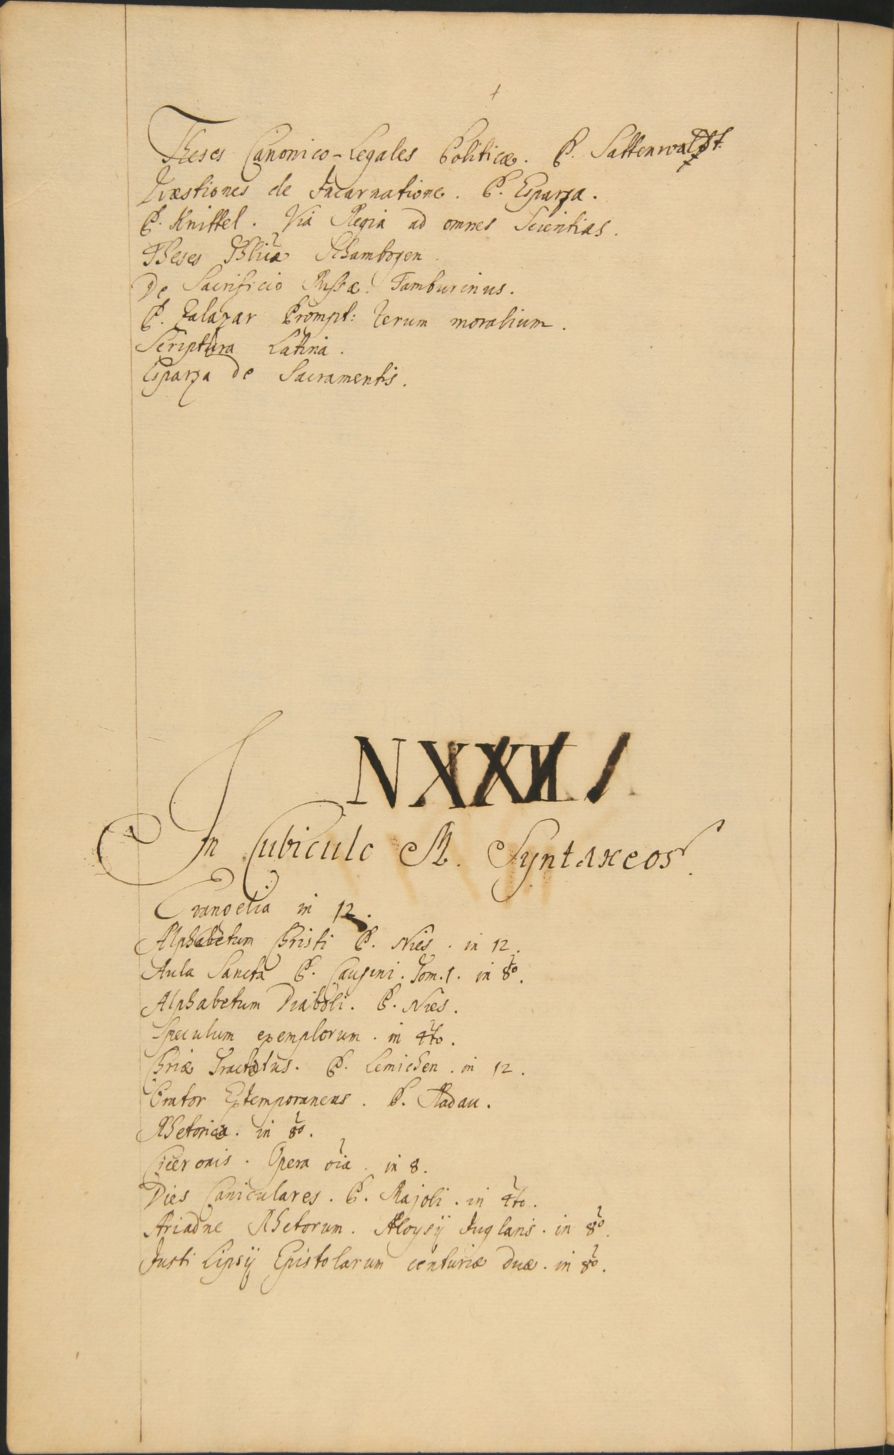 Theses Canonico-Legales Politicæ. P. Sattenwaldt.
Quæstiones de Incarnatione. P. Esparza.
P. Knittel. Via Regia ad omnes Scientias.
Theses Schambogen
De Sacrificio Missæ. Tamburinus.
P. Salazar Prompt: rerum moralium.
Scriptura Latina.
Esparza de Sacramentis.
In Cubiculo M. Syntaxeos.
Evangelia in 12.
Alphabetum Christi P. Nies. in 12.
Aula Sancta P. Causini. Tom. 1. in 8o.
Alphabetum Diaboli. P. Nies.
Speculum exemplorum. in 4to.
Chriæ Tractatus. P. Lemichen. in 12.
Orator Extemporaneus. P. Radau.
Rhetorica. in 8o.
Ciceronis. Opera oia. in 8.
Dies Caniculares. P. Majoli. in 4to.
Ariadne Rhetorum. Aloysij Juglaris. in 8o.
Justi Lipsij Epistolarum centuriæ duæ. in 8o.